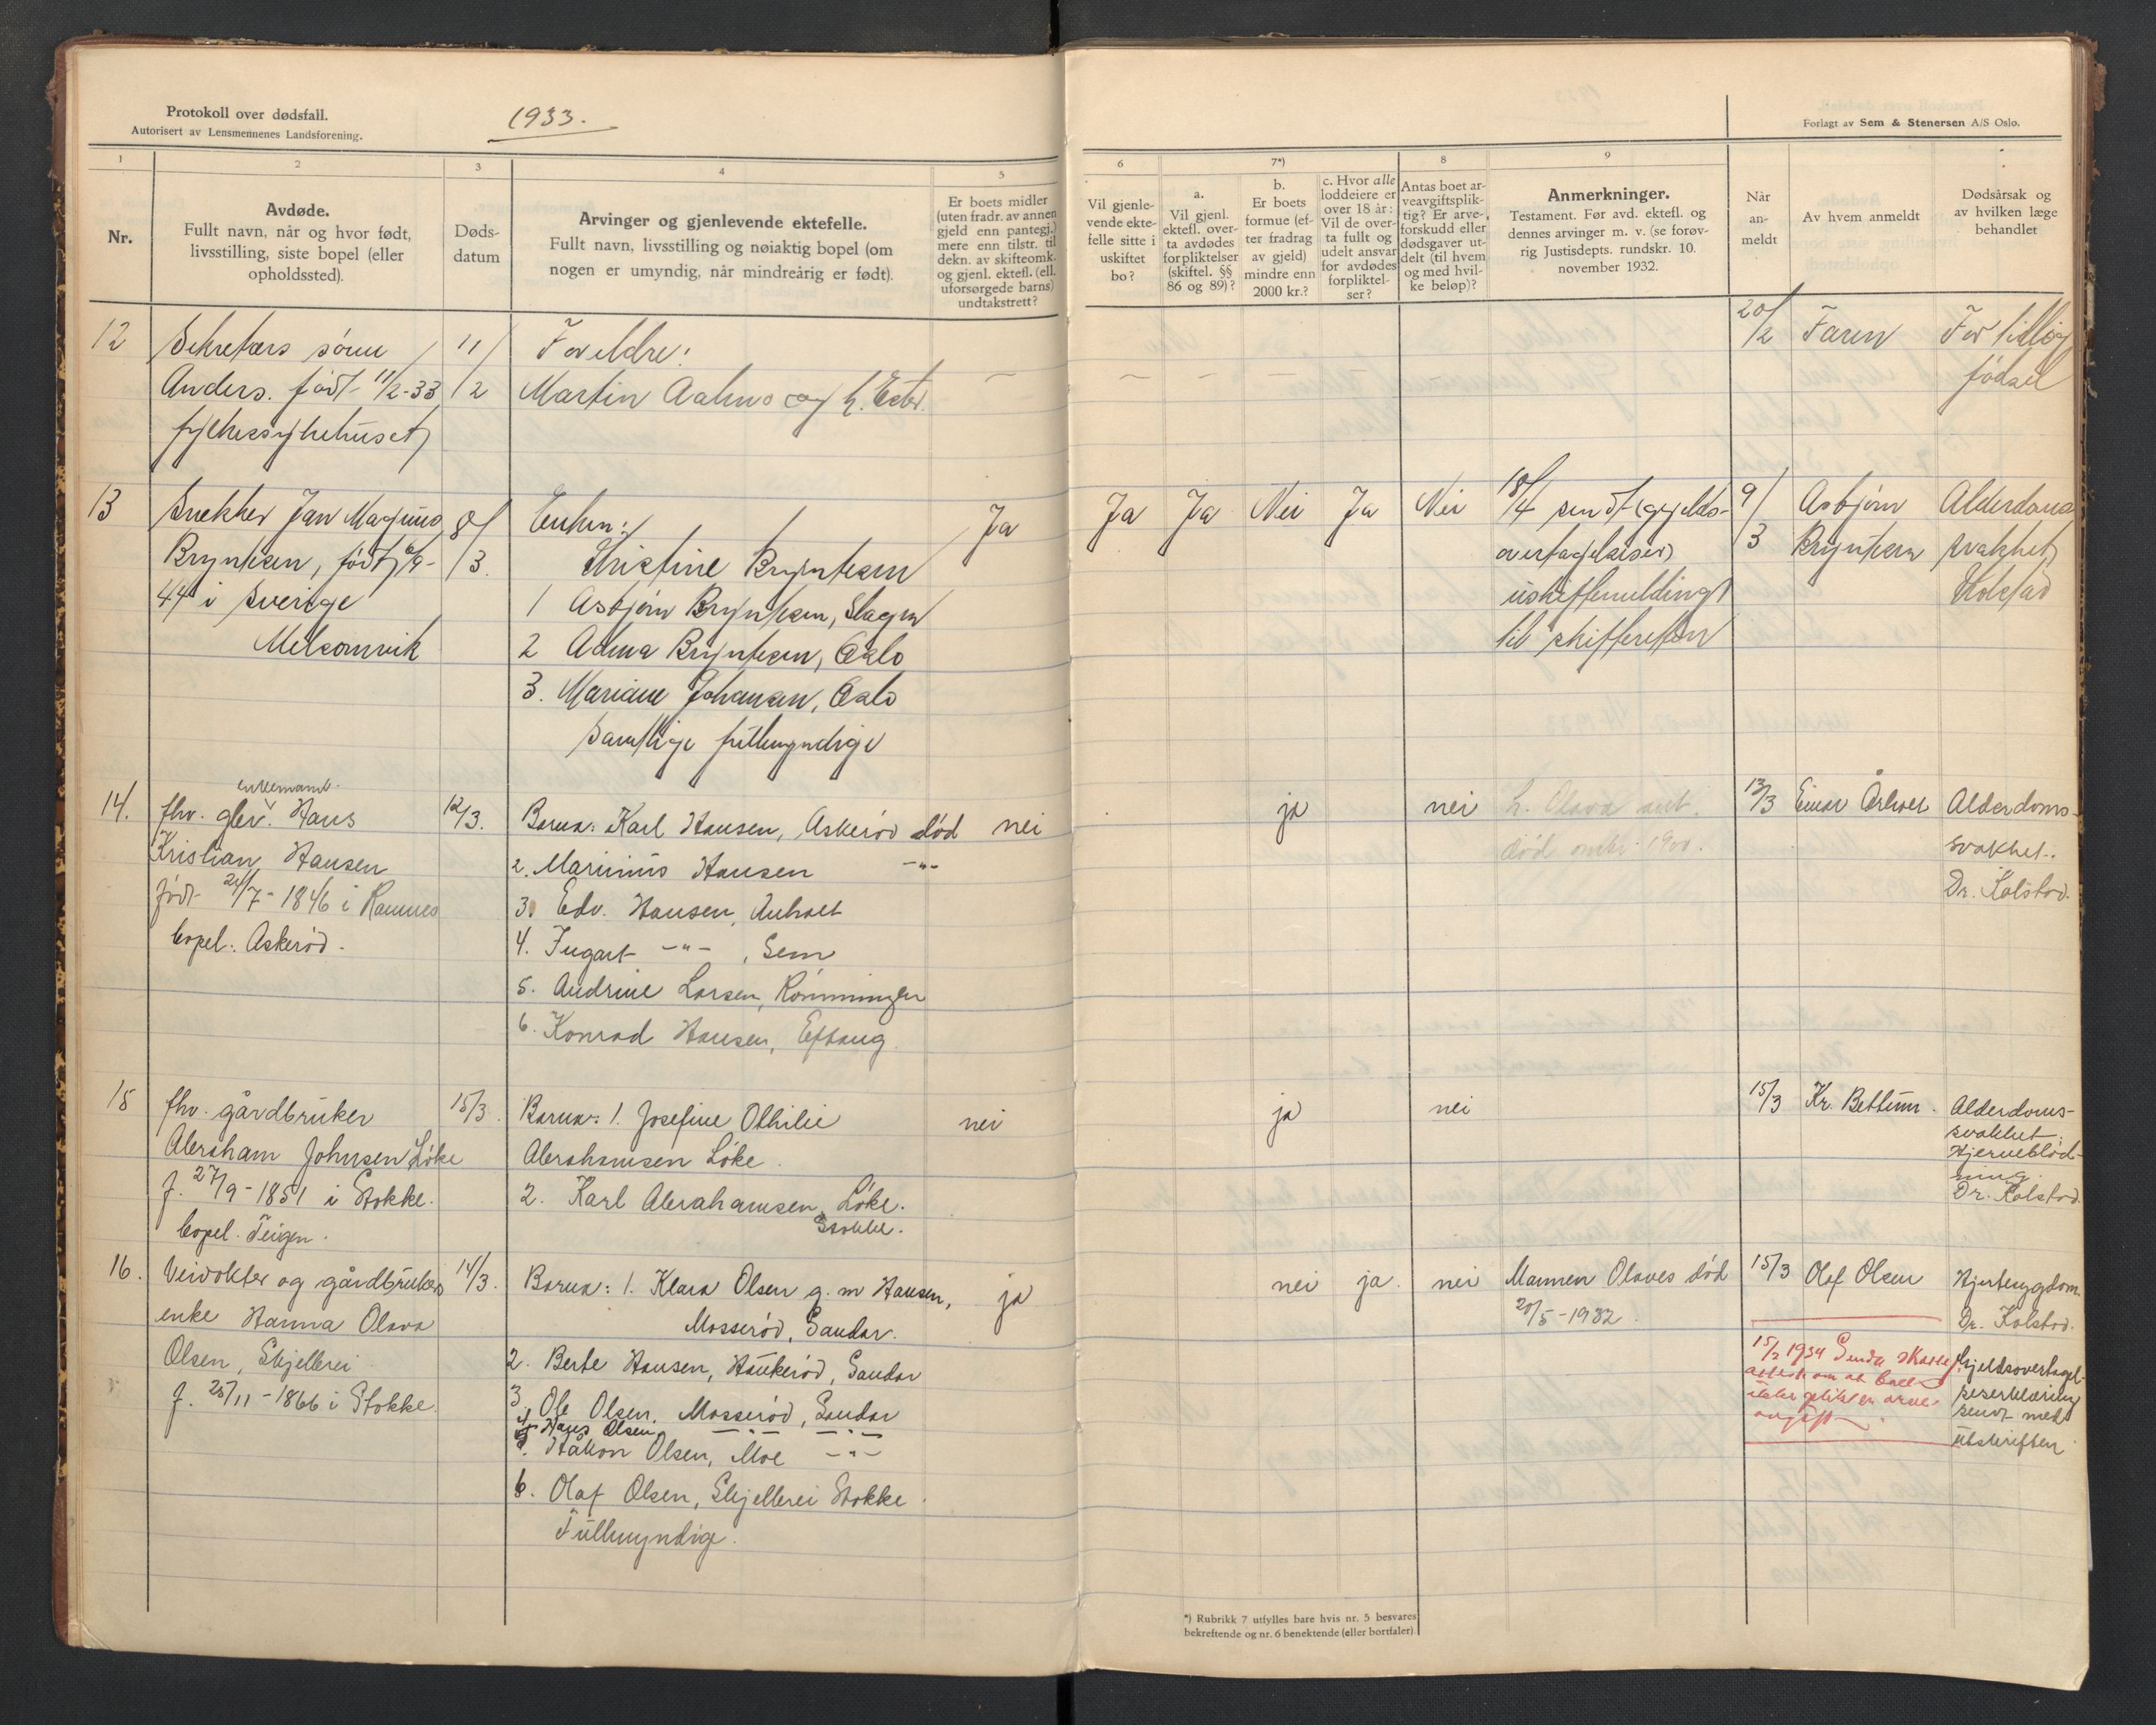 Protokoll over dødsfall.
Autorisert av Lensmennenes Landsforening.
1933.
Forlagt av Sem & Stenersen A/S Oslo.
1
2
3
4
5
6
7*)
8
9
Nr.
Avdøde.
Fullt navn, når og hvor født,
livsstilling, siste bopel (eller
opholdssted).
Døds-
datum
Arvinger og gjenlevende ektefelle.
Fullt navn, livsstilling og nøiaktig bopel (om
nogen er umyndig, når mindreårig er født).
Er boets midler
(uten fradr. av annen
gjeld enn pantegj.)
mere enn tilstr. til
dekn. av skifteomk.
og gjenl. ektefl. (ell.
uforsørgede barns)
undtakstrett?
Vil gjenle-
vende ekte-
felle sitte i
uskiftet
bo?
a.
Vil gjenl.
ektefl. over-
ta avdødes
forpliktelser
(skiftel. §§
86 og 89)?
b.
Er boets
formue (ef-
ter fradrag
av gjeld)
mindre enn
2000 kr.?
c. Hvor alle
loddeiere er
over 18 år:
Vil de over-
ta fullt og
udelt ansvar
for avdødes
forpliktel-
ser?
Antas boet ar-
veavgiftsplik-
tig? Er arve-
forskudd eller
dødsgaver ut-
delt (til hvem
og med hvil-
ke beløp)?
Anmerkninger.
Testament. Før avd. ektefl. og
dennes arvinger m. v. (se forøv-
rig Justisdepts. rundskr. 10.
november 1932.
Når
an-
meldt
Av hvem anmeldt
Dødsårsak og
av hvilken læge
behandlet
12
Sekretærs sønn
Anders. født 11/2-33
fylkessykehuset
11/2
Foreldre:
Martin Aahus og h. Ester.
—
— — — — —
20/2
Faren
For tidlig
fødsel
13
Snekker Jan Magnus
Bryntesen, født 6/9-
44 i Sverige
Melsomvik
8/3.
Enken:
Kristine Bryntesen
1 Asbjørn Bryntesen, Slagen
2 Adma Bryntesen, Oslo
3. Mariane Johansen, Oslo
Samtlige fullmyndige
Ja
Ja
Ja
Nei
Ja
Nei
18/4 sendt (gjelds-
overtagelseser)
uskiftemelding
til skifteretten
9/3
Asbjørn
Bryntesen
Alderdoms
svakhet
Kolstad
14.
enkemand.
fhv. gbr. Hans
Kristian Hansen
født 24/7-1846 i Ramnes
bopel: Askerød.
12/3.
Barn: Karl Hansen, Askerød død
2. Marinius Hansen -"-
3. Edv. Hansen, Anholt
4. Ingart -"-, Sem
5. Andrine Larsen, Rønningen
6. Konrad Hansen, Eftang.
nei
ja
nei
h. Olava
død omkr. 1900.
13/3
Einar Årholt
Alderdoms-
svakhet.
Dr. Kolstad.
15
fhv. gårdbruker
Abraham Johnsen Løke
f. 27/9-1851 i Stokke.
bopel. Teigen.
15/3.
Barn: 1. Josefine Othilie
Abrahamsen Løke.
2. Karl Abrahamsen, Løke.
Stokke.
nei
ja
nei
15/3
Kr. Bettum.
Alderdoms-
svakhet.
Hjerneblød-
ning.
Dr. Kolstad.
16.
Veivokter og gårdbrukers
enke Hanna Olava
Olsen, Skjellerei
f. 25/11-1866 i Stokke.
14/3.
Barn: 1. Klara Olsen g. m Hansen,
Mosserød, Sandar.
2. Berte Hansen, Haukerød, Sandar
3. Ole Olsen, Mosserød, Sandar
4. Hans Olsen -"- -"-
5. Håkon Olsen, Moe -"-
6. Olaf Olsen, Skjellerei Stokke.
Fullmyndige.
ja
nei
ja.
nei
Mannen Olaves død
20/5-1932.
15/3
Olaf Olsen
Hjertesygdom.
Dr. Kolstad.
15/2 1934 Sendt
attest om at boet
ikke arve-
avgift
Gjeldsovertagel-
seserklæring
sendt med
utskriften.
*) Rubrikk 7 utfylles bare hvis nr. 5 besvares
bekreftende og nr. 6 benektende (eller bortfaler).